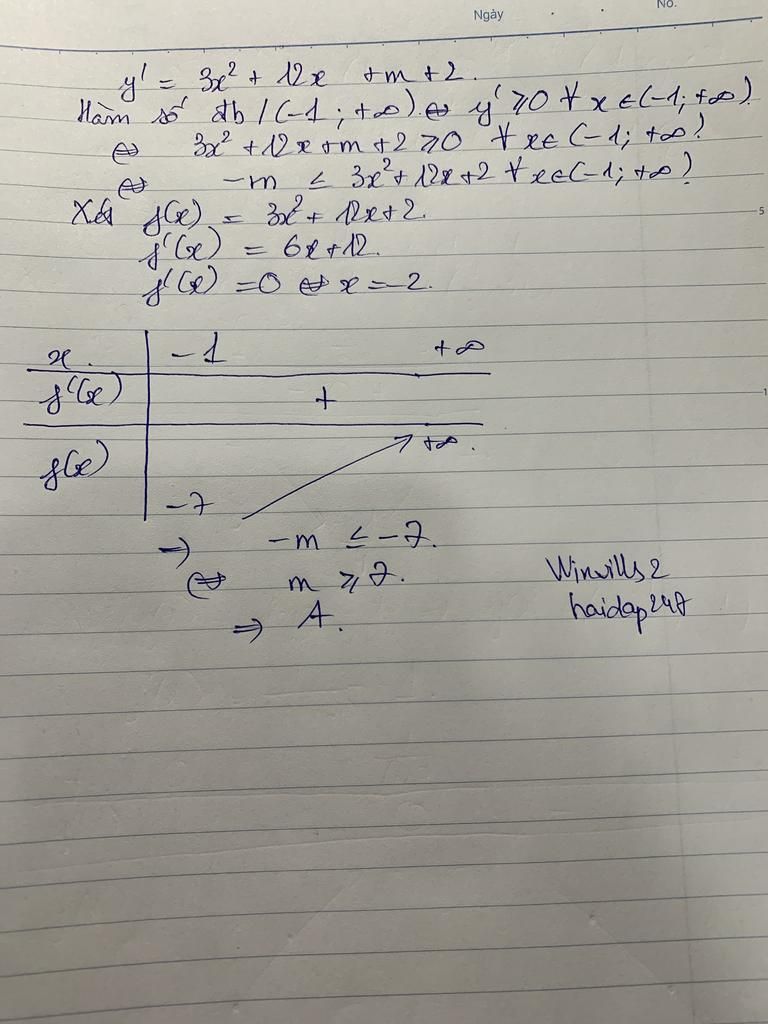 Ngày
No.
y' = 3x² + 12x + m + 2.
Hàm số đb / (-1 ; +∞) ⇔ y' ≥ 0 ∀ x ∈ (-1; +∞)
⇔ 3x² + 12x + m + 2 ≥ 0 ∀ x ∈ (-1; +∞)
⇔ -m ≤ 3x² + 12x + 2 ∀ x ∈ (-1; +∞)
Xét f(x) = 3x² + 12x + 2.
5
f'(x) = 6x + 12.
f'(x) = 0 ⇔ x = -2.
x -1 +∞
f'(x) +
1
f(x) +∞.
-7
⇒ -m ≤ -7.
⇔ m ≥ 7.
⇒ A.
Winvills2
hoidap247